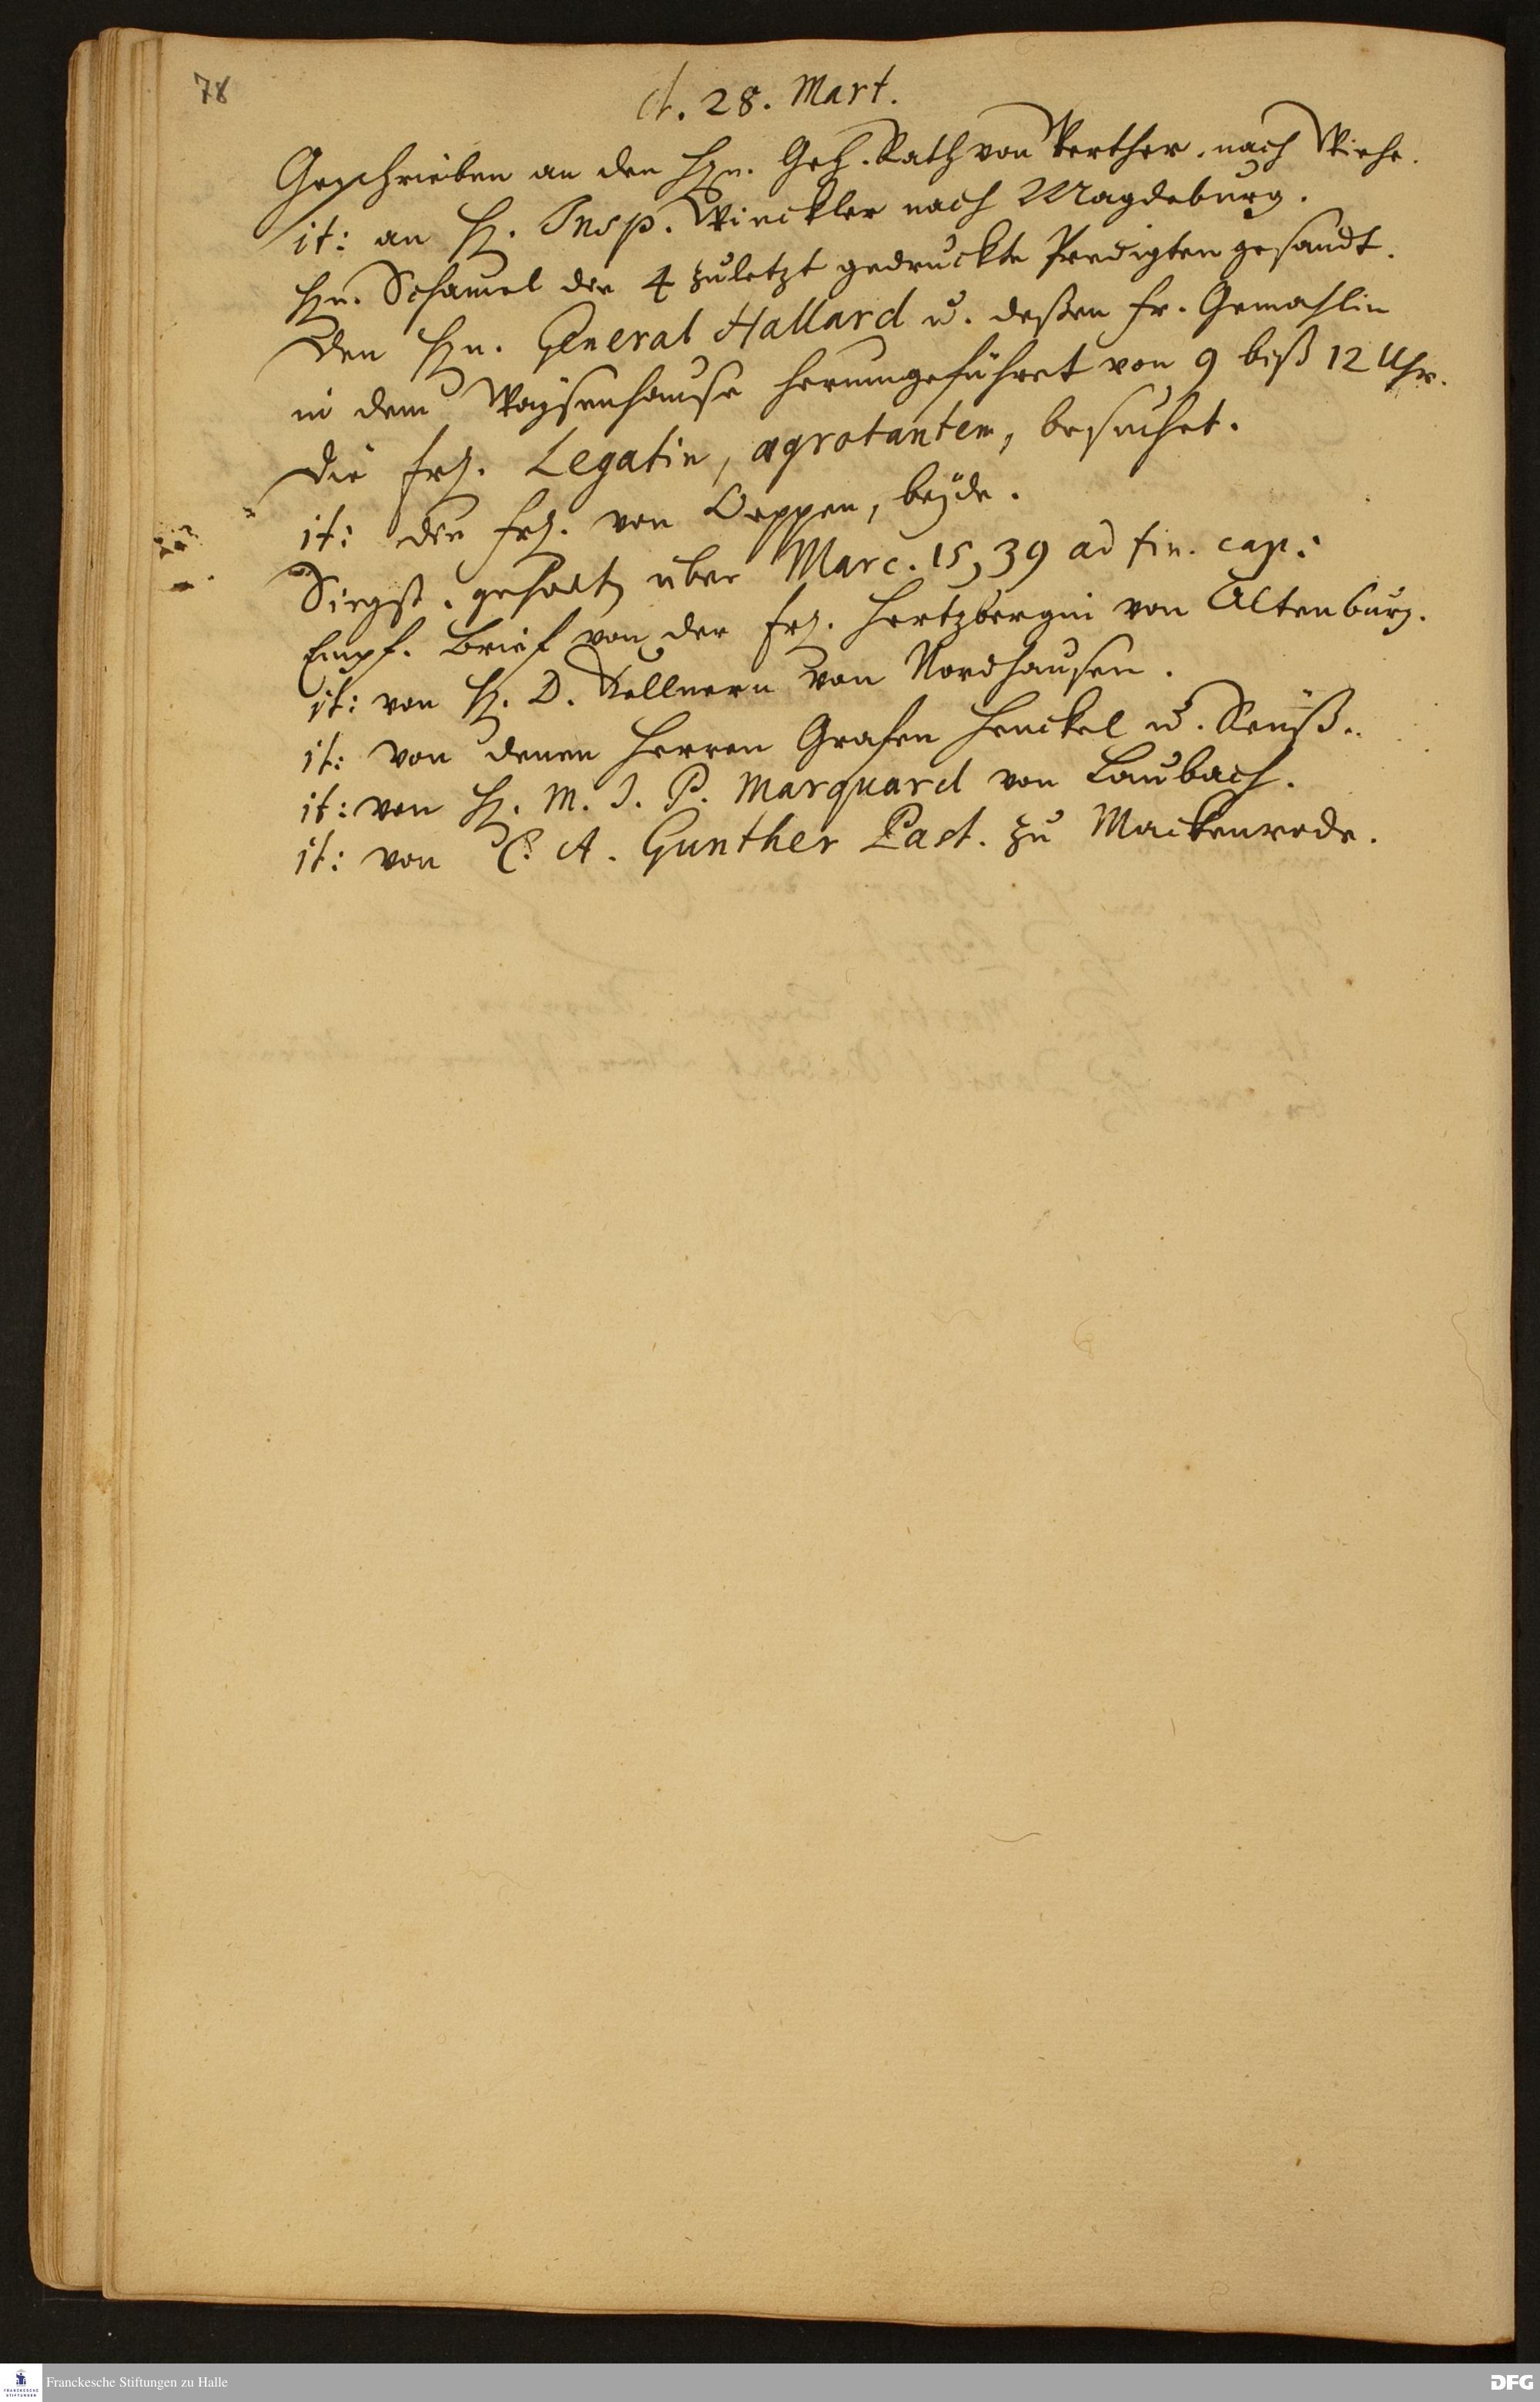 78
d. 28. Mart.
Geschrieben an den Hn. Geh. Rath von Werther. nach Wiehe.
it: an H. Insp. Winckler nach Magdeburg.
Hn. Schamel die 4 zuletzt gedruckte Predigten gesandt.
Den Hn. General Hallard u. deßen Fr. Gemahlin
in dem Waysenhause herumgeführet von 9 biß 12 Uhr.
Die Frl. Legatin, ægrotantem, besuchet.
it: die Frl. von Oeppen, beyde.
Singst. gehalt. über Marc. 15, 39 ad fin. cap:
Empf. Brief von der Frl. Hertzbergin von Altenburg.
it: von H. D. Kellnern von Nordhausen.
it: von denen Herren Grafen Henckel u. Reuß.
it: von H. M. J. P. Marquard von Laubach.
it: von C. A. Gunther Past. zu Mackenrode.
Franckesche Stiftungen zu Halle
DFG